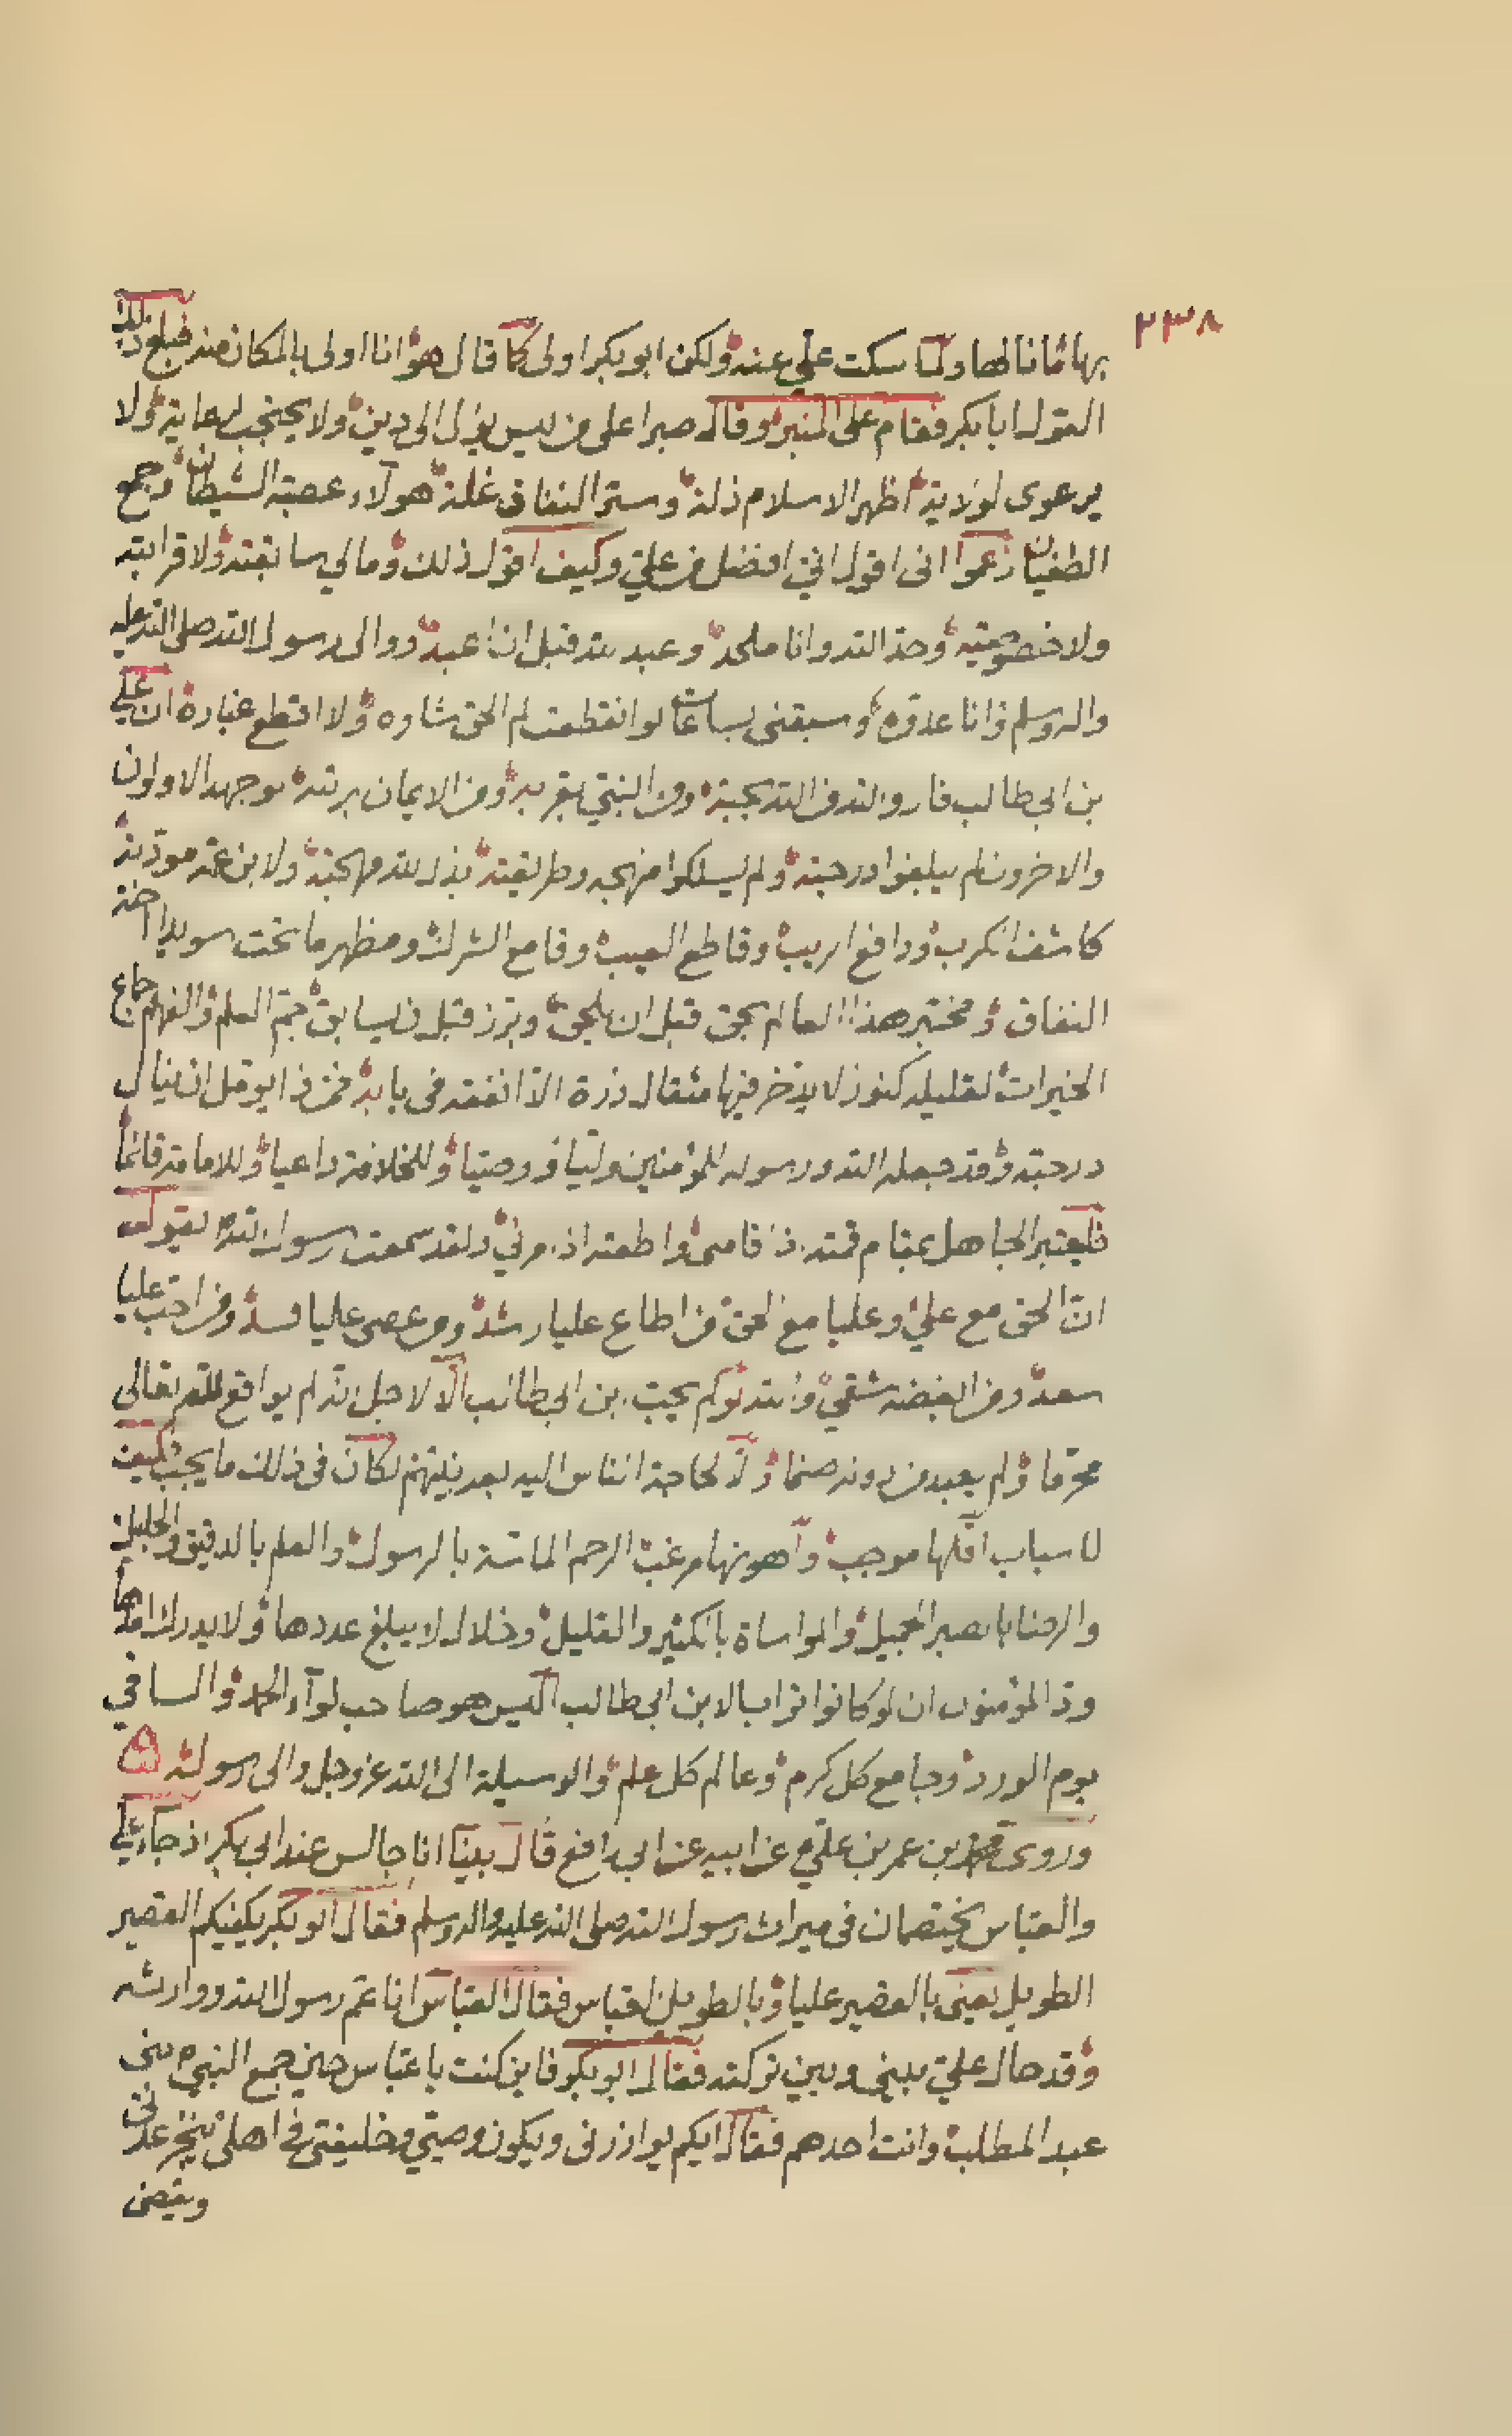 ٢٣٨
بها ثانا لها ولما سكت علي عنه ولكن ابو بكر اولى كما قال هو انا اولى بالمكان منه فبلغ ذلك
القول ابا بكر فقام على المنبر وقال صبرا على من ليس يؤل الى دين ولا يحتجب لرعاية ولا
يرعوى لولاية اظهر الاسلام ذلة وستر النفاق غلة هولآء عصبة الشيطان وجمع
الطغيان زعموا انى اقول اني افضل من علي وكيف اقول ذلك ومالي سابقته ولا قرابته
ولا خصوصيته وحد الله وانا ملحد وعبد الله قبل ان اعبد ووالى رسول الله صلى الله عليه
واله وسلم وانا عدوه وسبقنى بساعات لو انقطعت لم الحق شاوه ولا اقطع غباره ان علي
بن ابي طالب فاز والله من الله بمحبة ومن النبي بقربة ومن الايمان برتبة لو جهد الاولون
والاخرون لم يبلغوا درجته ولم يسلكوا منهجه وطريقته بذل لله مهجته ولابن عمه مودته
كاشف الكرب ودافع الريب وقاطع السبب وقامع الشرك ومظهر ما تحت سويدا حبة
النفاق ومختبر هذا العالم لحق قبل ان يلحق وبرز قبل ان يسابق جمع العلم والفهم جماع
الخيرات لقلبه كنوز لا يدخر منها مثقال ذرة الا انفقه فى بابه فمن ذا يؤمل ان ينال
درجته وقد جعله الله ورسوله للمؤمنين وليا ووصيا وللخلافة داعيا وللامامة قائما
فليعتبر الجاهل بمقام قمته اذ اقامنى واطعته اذ امرني ولقد سمعت رسول الله يقول
ان الحق مع علي وعليا مع الحق من اطاع عليا رشد ومن عصى عليا فسد ومن احب عليا
سعد ومن ابغضه شقي والله لو لم يحب ابن ابي طالب الا لاجل انه لم يواقع لله تعالى
محرما ولم يعبد من دونه صنما ولحاجة الناس اليه بعد نبيهم لكان فى ذلك ما يجب فكيف
لاسباب اقلها موجب واهونها مرغب الرحم الماسة بالرسول والعلم بالدقيق والجليل
والرضا بالصبر الجميل والمواساة بالكثير والقليل وخلال لا يبلغ عددها ولا يدرك امدها
ود المؤمنون ان لو كانوا تراب الابن ابي طالب اليس هو صاحب لوآء الحمد والساقي
يوم الورد وجامع كل كرم وعالم كل علم والوسيلة الى الله عز وجل والى رسوله
وروى محمد بن عمر بن علي عن ابيه عن ابي رافع قال بينا انا جالس عند ابي بكر اذ جآء علي
والعباس يختصمان فى ميراث رسول الله صلى الله عليه واله وسلم فقال ابو بكر يكفيكم القصير
الطويل يعنى بالقصير عليا وبالطويل العباس فقال العباس انا عم رسول الله ووارثه
وقد حال علي بينى وبين تركته فقال ابو بكر فاين كنت يا عباس حين جمع النبي بنى
عبد المطلب وانت احدهم فقال ايكم يوازرنى ويكون وصيي وخليفتى في اهلى ينجز عدتى
ويقضى